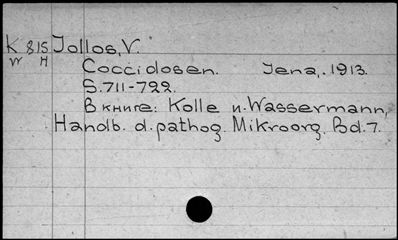 K 815 Jollos, V.
W H
Coccidosen. Jena, 1913.
S. 711-722.
В книге: Kolle u. Wassermann,
Handb. d. pathog. Mikroorg. Bd. 7.